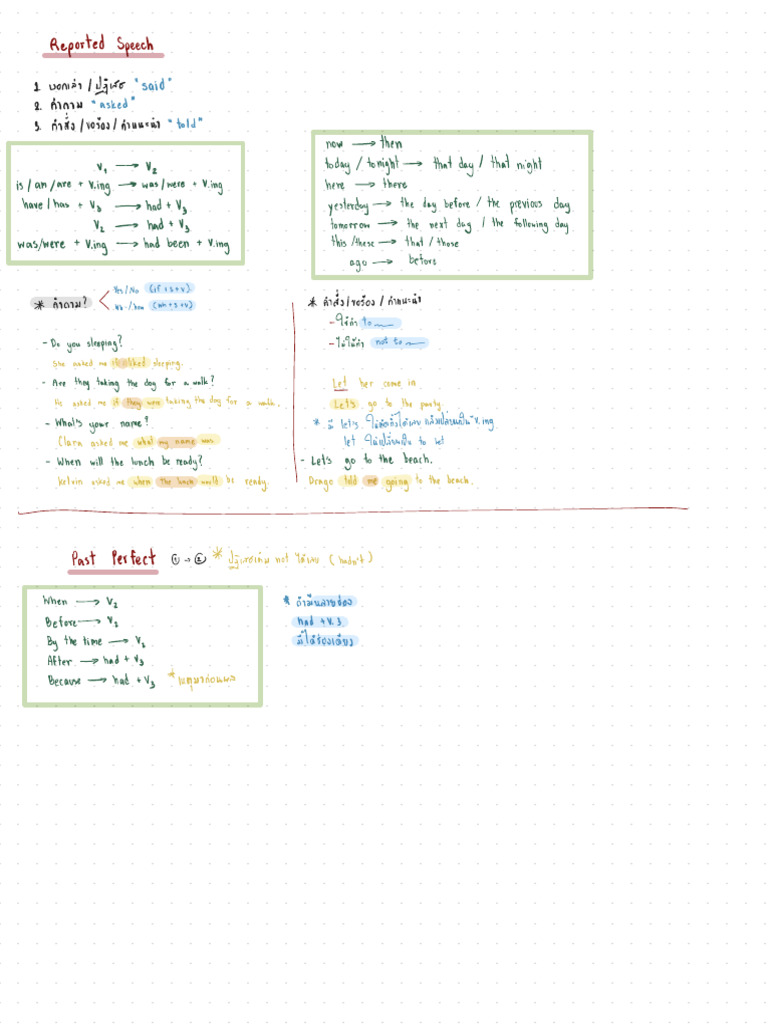 Reported Speech
1. บอกเล่า / ปฏิเสธ "said"
2. คำถาม "asked"
3. คำสั่ง / ขอร้อง / คำแนะนำ "told"
V1 → V2
is / am / are + V.ing → was / were + V.ing
have / has + V3 → had + V3
V2 → had + V3
was/were + V.ing → had been + V.ing
now → then
today / tonight → that day / that night
here → there
yesterday → the day before / the previous day
tomorrow → the next day / the following day
this /these → that / those
ago → before
* คำถาม?
Yes / No (if + s + v)
Wh- / how (wh + s + v)
- Do you sleeping?
She asked me if I slept sleeping.
- Are they taking the dog for a walk?
He asked me if they were taking the dog for a walk.
- What's your name?
Clara asked me what my name was
- When will the lunch be ready?
Kelvin asked me when the lunch would be ready.
* คำสั่ง / ขอร้อง / คำแนะนำ
- ใช้คำ to
- ไม่ใช้คำ not to
Let her come in
Let's go to the party.
* มี let's ให้ตัดทิ้งได้เลย แล้วเปลี่ยนเป็น "V.ing
let ให้เปลี่ยนเป็น to let
- Let's go to the beach.
Drago told me going to the beach.
Past Perfect ① → ② * ปฏิเสธเติม not ได้เลย (hadn't)
When → V2
Before → V2
By the time → V2
After → had + V3
Because → had + V3 * เหตุมาก่อนผล
* ถ้ามีหลายช่อง
had + V.3
มีได้ช่องเดียว